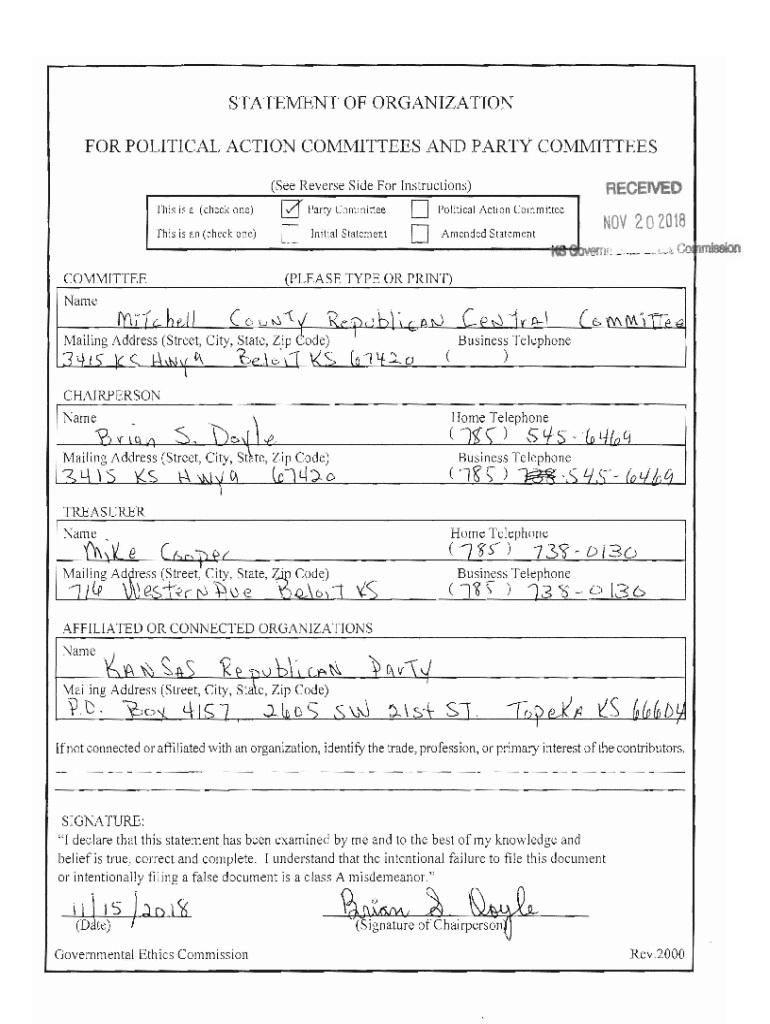 STATEMENT OF ORGANIZATION
FOR POLITICAL ACTION COMMITTEES AND PARTY COMMITTEES
(See Reverse Side For Instructions)
RECEIVED
This is a (check one) ✓ Party Committee Political Action Committee
NOV 20 2018
This is an (check one) Initial Statement Amended Statement
KS Governm Commission
COMMITTEE (PLEASE TYPE OR PRINT)
Name
Mitchell County Republican Central Committee
Mailing Address (Street, City, State, Zip Code) Business Telephone
3415 KS Hwy 9 Beloit KS 67420 ( )
CHAIRPERSON
Name Home Telephone
Brian S. Doyle (785) 545-6469
Mailing Address (Street, City, State, Zip Code) Business Telephone
3415 KS Hwy 9 67420 (785) 545-6469
TREASURER
Name Home Telephone
Mike Cooper (785) 738-0130
Mailing Address (Street, City, State, Zip Code) Business Telephone
716 Western Ave Beloit KS (785) 738-0130
AFFILIATED OR CONNECTED ORGANIZATIONS
Name
Kansas Republican Party
Mailing Address (Street, City, State, Zip Code)
P.O. Box 4157 2605 SW 21st ST. Topeka KS 66604
If not connected or affiliated with an organization, identify the trade, profession, or primary interest of the contributors.
SIGNATURE:
"I declare that this statement has been examined by me and to the best of my knowledge and
belief is true, correct and complete. I understand that the intentional failure to file this document
or intentionally filing a false document is a class A misdemeanor."
11/15/2018 Brian S Doyle
(Date) (Signature of Chairperson)
Governmental Ethics Commission Rev.2000